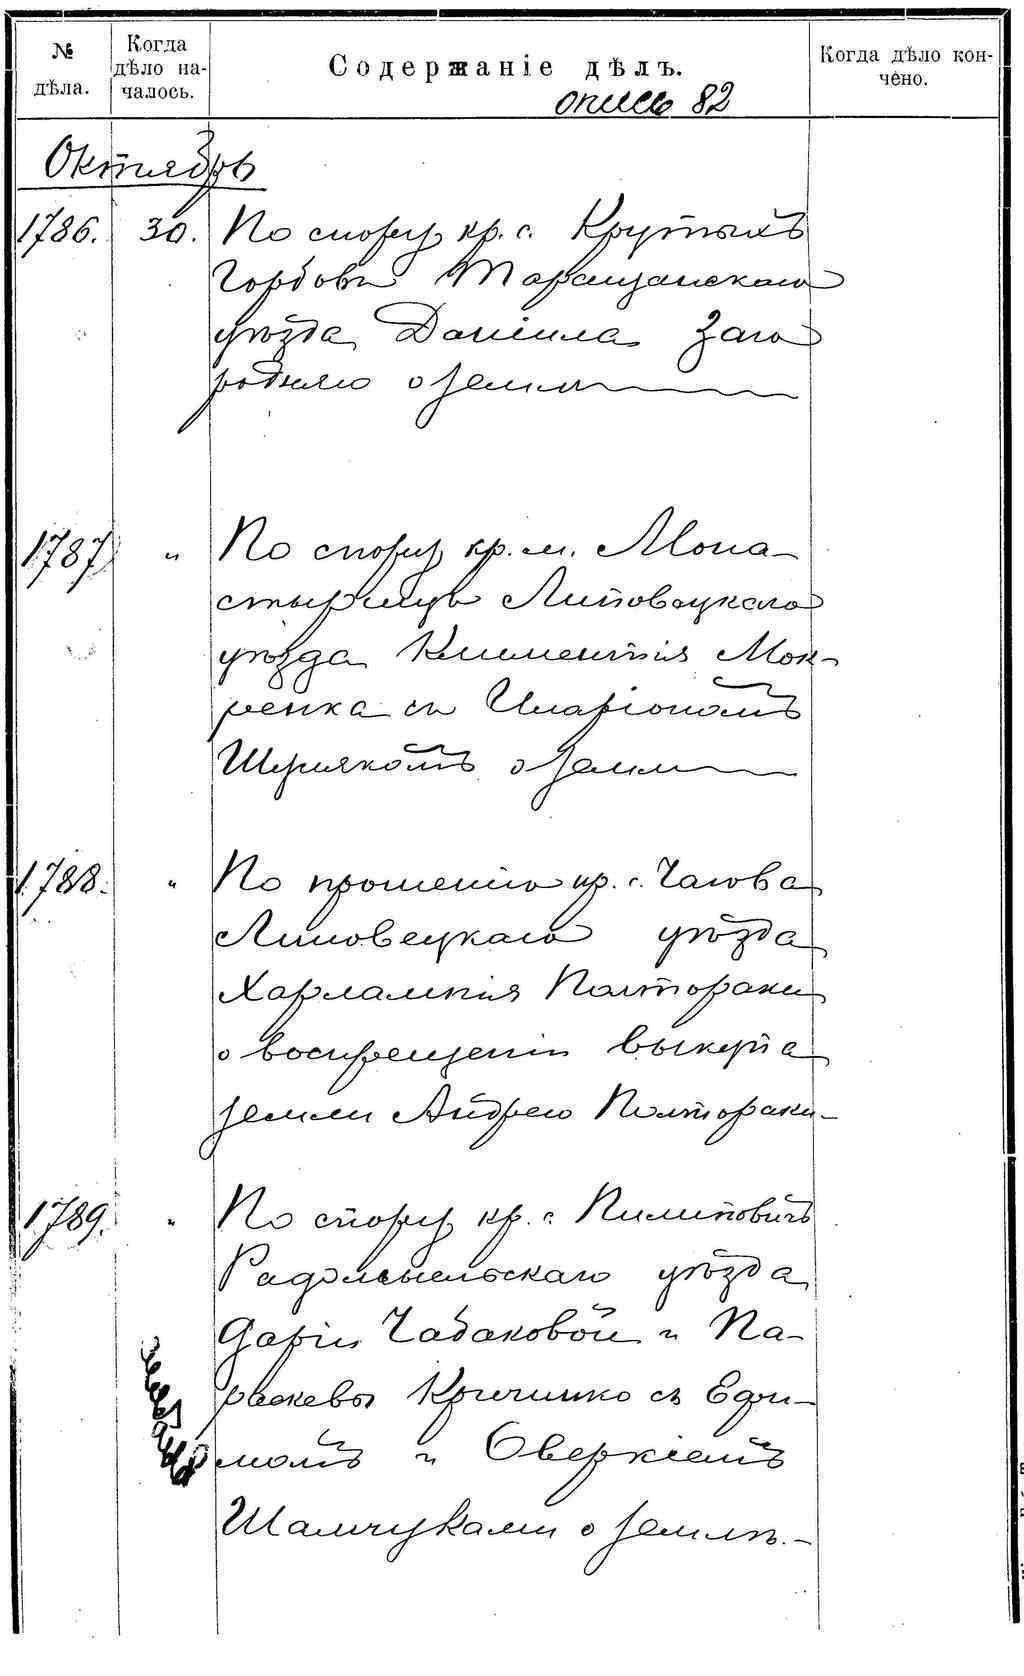 № дѣла.
Когда дѣло началось.
Содержаніе дѣлъ.
Когда дѣло кончено.
опись 82
Октябрь
1786. 30. По спору кр. с. Крутыхъ
Горбовъ Таращанскаго
уѣзда Даніила Заго
родняго о землѣ
1787 " По спору кр. м. Мона-
стырища Липовецкаго
уѣзда Климентія Мок-
ренка съ Иларіономъ
о землѣ
1788. " По прошенію кр. с. Чагова
Липовецкаго уѣзда
Харлампія Полтораки
о воспрещеніи выкупа
земли Андрею Полтораки-
1789. " По спору кр. с. Пилиповичъ
Радомысльскаго уѣзда
Даріи Чабаковой и Па-
раскевы Кричишко съ Ефи-
момъ и Оверкіемъ
Шамчуками о землѣ.-